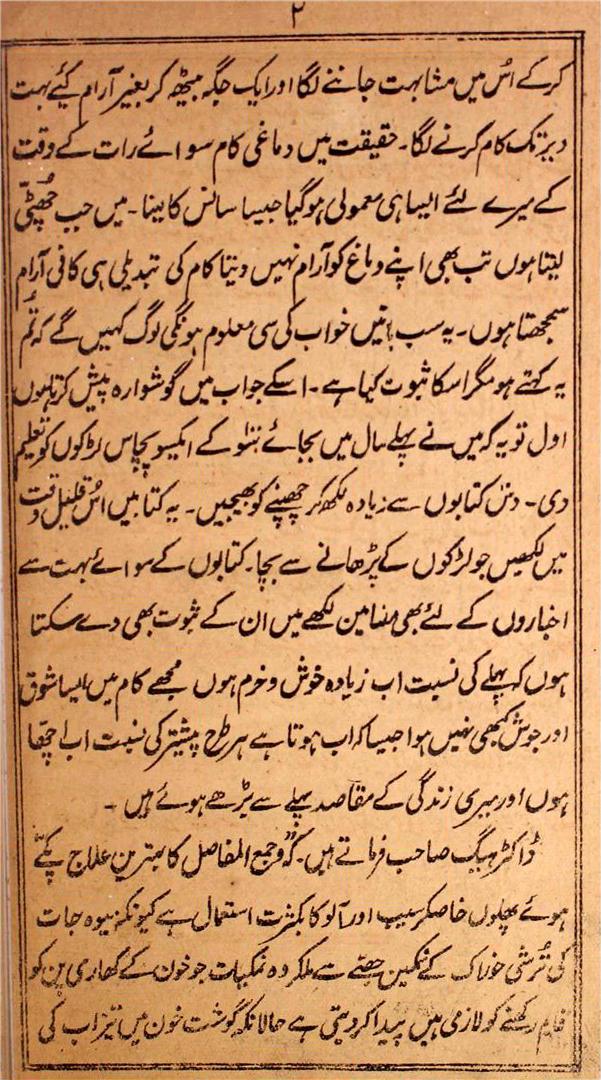 ۲
کرکے اُس میں مشابہت جاننے لگا اور ایک جگہ بیٹھ کر بغیر آرام کیئے بہت
دیر تک کام کرنے لگا۔ حقیقت میں دماغی کام سوائے رات کے وقت
کے میرے لئے ایسا ہی معمولی ہوگیا جیسا سانس کا لینا۔ میں جب چھُٹّی
لیتا ہوں تب بھی اپنے دماغ کو آرام نہیں دیتا کام کی تبدیلی ہی کافی آرام
سمجھتا ہوں۔ یہ سب باتیں خواب کی سی معلوم ہونگی لوگ کہیں گے کہ تُم
یہ کہتے ہو مگر اسکا ثبوت کیا ہے۔ اسکے جواب میں گوشوارہ پیش کرتا ہوں
اول تو یہ کہ میں نے پہلے سال میں بجائے سَو کے ایکسو پچاس لڑکوں کو تعلیم
دی۔ دس کتابوں سے زیادہ لکھ کر چھپنے کو بھیجیں۔ یہ کتابیں اُس قلیل وقت
میں لکھیں جو لڑکوں کے پڑھانے سے بچا۔ کتابوں کے سوائے بہت سے
اخباروں کے لئے بھی مضامین لکھے میں ان کے ثبوت بھی دے سکتا
ہوں کہ پہلے کی نسبت اب زیادہ خوش و خرم ہوں مجھے کام میں ایسا شوق
اور جوش کبھی نہیں ہوا جیسا کہ اب ہوتا ہے ہر طرح پیشتر کی نسبت اب اچھّا
ہوں اور میری زندگی کے مقاصد پہلے سے بڑھے ہوئے ہیں۔
ڈاکٹر ہیگ صاحب فرماتے ہیں۔ کہ وجع المفاصل کا بہترین علاج پکّے
ہوئے پھلوں خاصکر سیب اور آلو کا بکثرت استعمال ہے کیونکہ میوہ جات
کی تُرشی خوراک کے نمکین حصّے سے ملکر وہ نمکیات جو خون کے کھاری پن کو
قایم رکھنے کو لازمی ہیں پیدا کردیتی ہے حالانکہ گوشت خون میں تیزاب کی